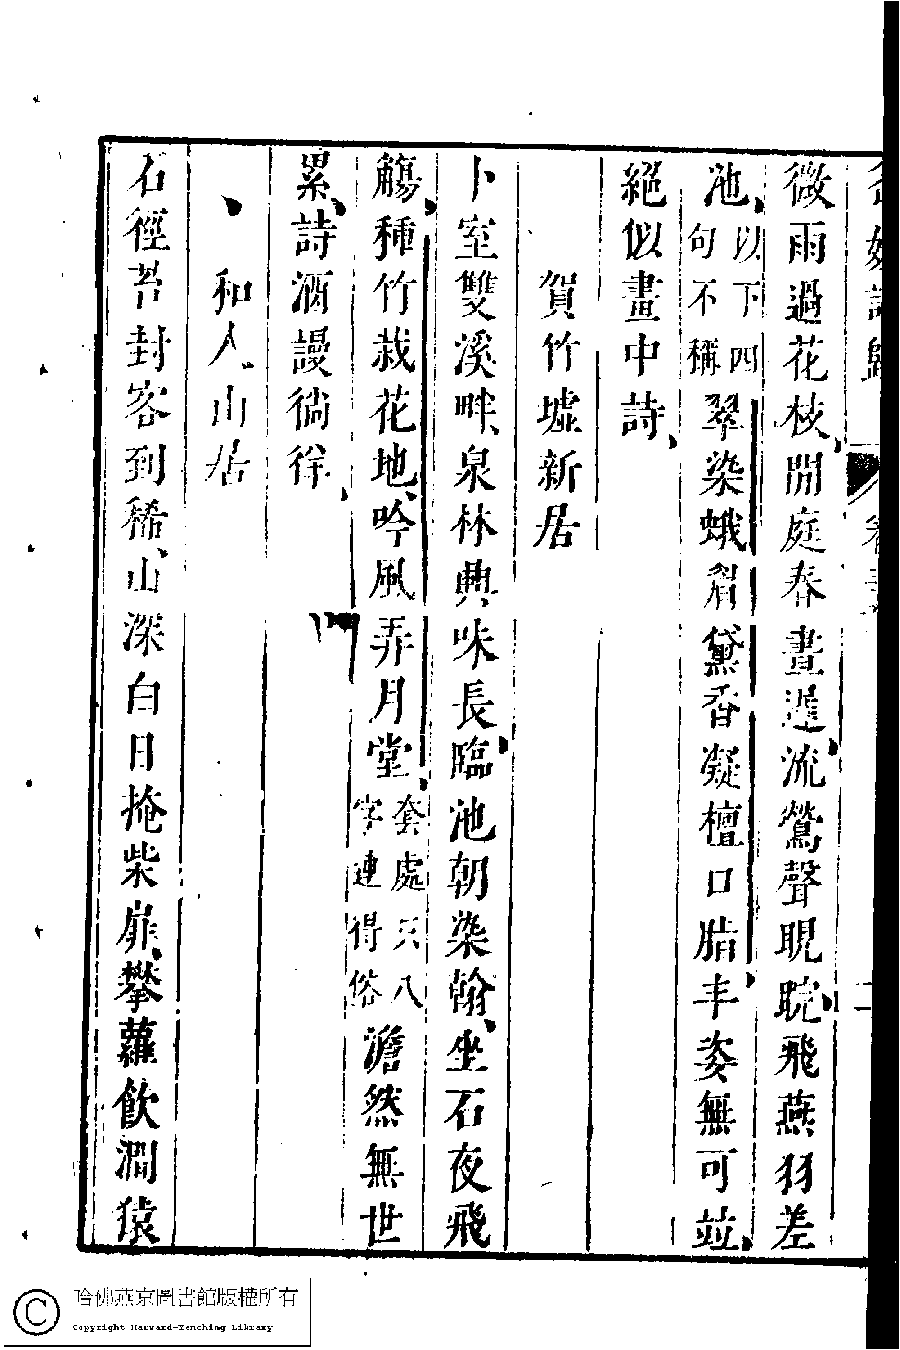 微雨過花枝、閒庭春晝遲、流鶯聲睍睆、飛燕羽差
池、以下四句不稱翠染蛾眉黛香凝檀口脂、丰姿無可並、
絕似畫中詩、
賀竹墟新居
卜室雙溪畔、泉林興味長、臨池朝染翰、坐石夜飛
觴、種竹栽花地、吟風弄月堂、套處只八字連得俗澹然無世
累、詩酒謾徜徉、
、和人山居
石徑苔封客到稀、山深白日掩柴扉、攀蘿飲澗猿
哈佛燕京圖書館版權所有
Copyright Harvard-Yenching Library